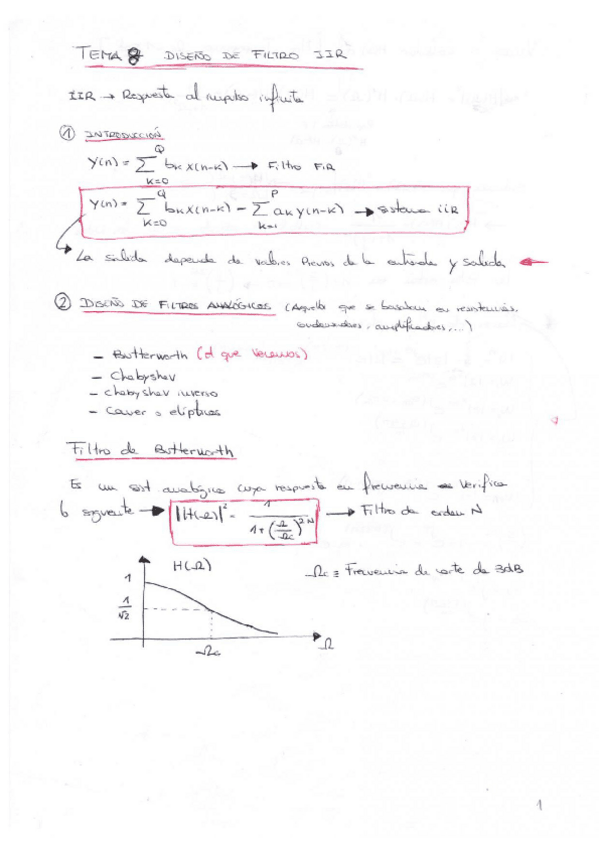 TEMA 8 DISEÑO DE FILTRO IIR
IIR → Respuesta al impulso infinita
① INTRODUCCIÓN
y(n) = Σ_{k=0}^{Q} b_k x(n-k) → Filtro FIR
y(n) = Σ_{k=0}^{Q} b_k x(n-k) - Σ_{k=1}^{P} a_k y(n-k) → sistema IIR
La salida depende de valores previos de la entrada y salida ←
② DISEÑO DE FILTROS ANALÓGICOS (Aquellos que se basaban en resistencias,
condensadores, amplificadores,...)
- Butterworth (el que veremos)
- Chebyshev
- Chebyshev inverso
- Cauer o elípticos
Filtro de Butterworth
Es un sist analógico cuya respuesta en frecuencia verifica
lo siguiente → |H(Ω)|² = 1 / (1 + (Ω/Ωc)^{2N}) → Filtro de orden N
H(Ω)
Ωc ≡ Frecuencia de corte de 3dB
1
1/√2
Ωc
Ω
1